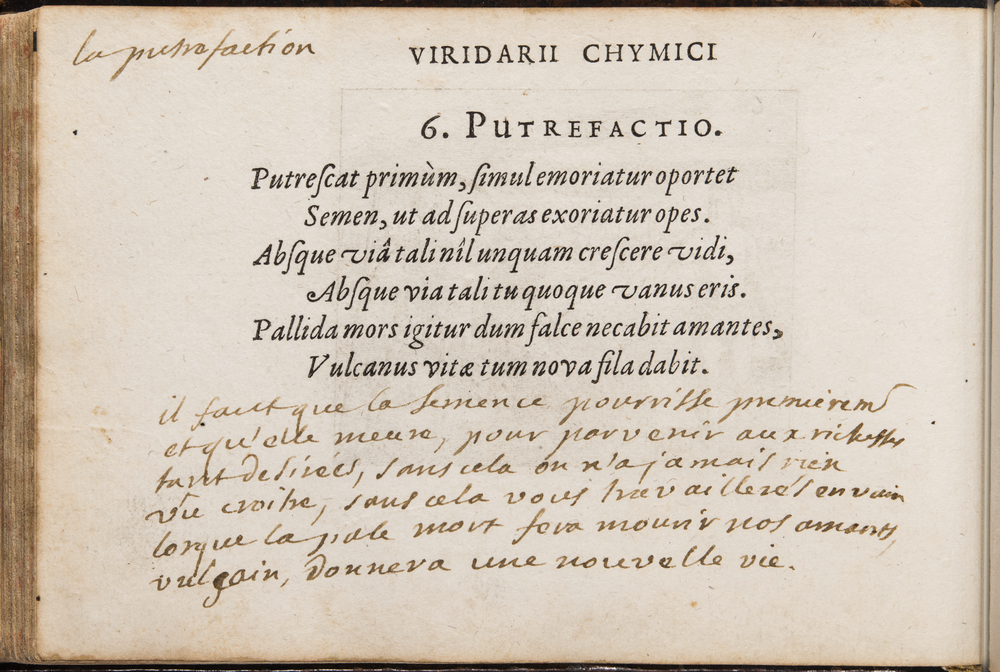 la putrefaction
VIRIDARII CHYMICI
6. PUTREFACTIO.
Putreſcat primùm, ſimul emoriatur oportet
Semen, ut ad ſuperas exoriatur opes.
Abſque viâ tali nîl unquam creſcere vidi,
Abſque via tali tu quoque vanus eris.
Pallida mors igitur dum falce necabit amantes,
Vulcanus vitæ tum nova fila dabit.
il faut que la semence pourrisse premierem
et qu'elle meure, pour parvenir aux richesses
tant desirées, sans cela on n'a jamais rien
vu croitre, sans cela vous travaillerés en vain
lorque la pale mort fera mourir nos amants,
vulgain, donnera une nouvelle vie.